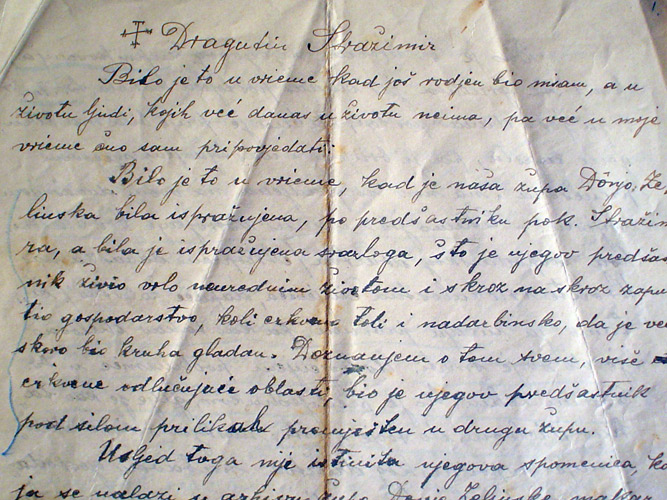 Dragutin Stražimir
Bilo je to u vrieme kad još rodjen bio nisam, a u
životu ljudi, kojih već danas u životu neima, pa već u moje
vrieme čuo sam pripovjedati:
Bilo je to u vrieme, kad je naša župa Dônjo, Ze
linska bila ispražnjena, po predšastniku pok. Stražim
ra, a bila je ispražnjena s razloga, što je njegov predšas
nik živio vrlo neurednim životom i skroz na skroz zapu
tio gospodarstvo, koli crkveno toli i nadarbinsko, da je već
skoro bio kruha gladan. Doznanjem o tom svem, više
crkvene odlučujuće oblasti, bio je njegov predšastnik
pod silom prilikah promješten u drugu župu.
Usljed toga nije istinita njegova spomenica, k
ja se nalazi u arhivu župe Donjo Zelinske